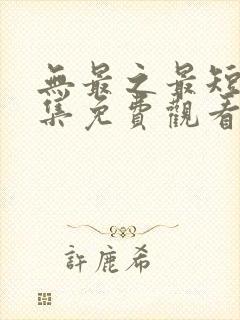 無最之最短
集免費觀看
許鹿希